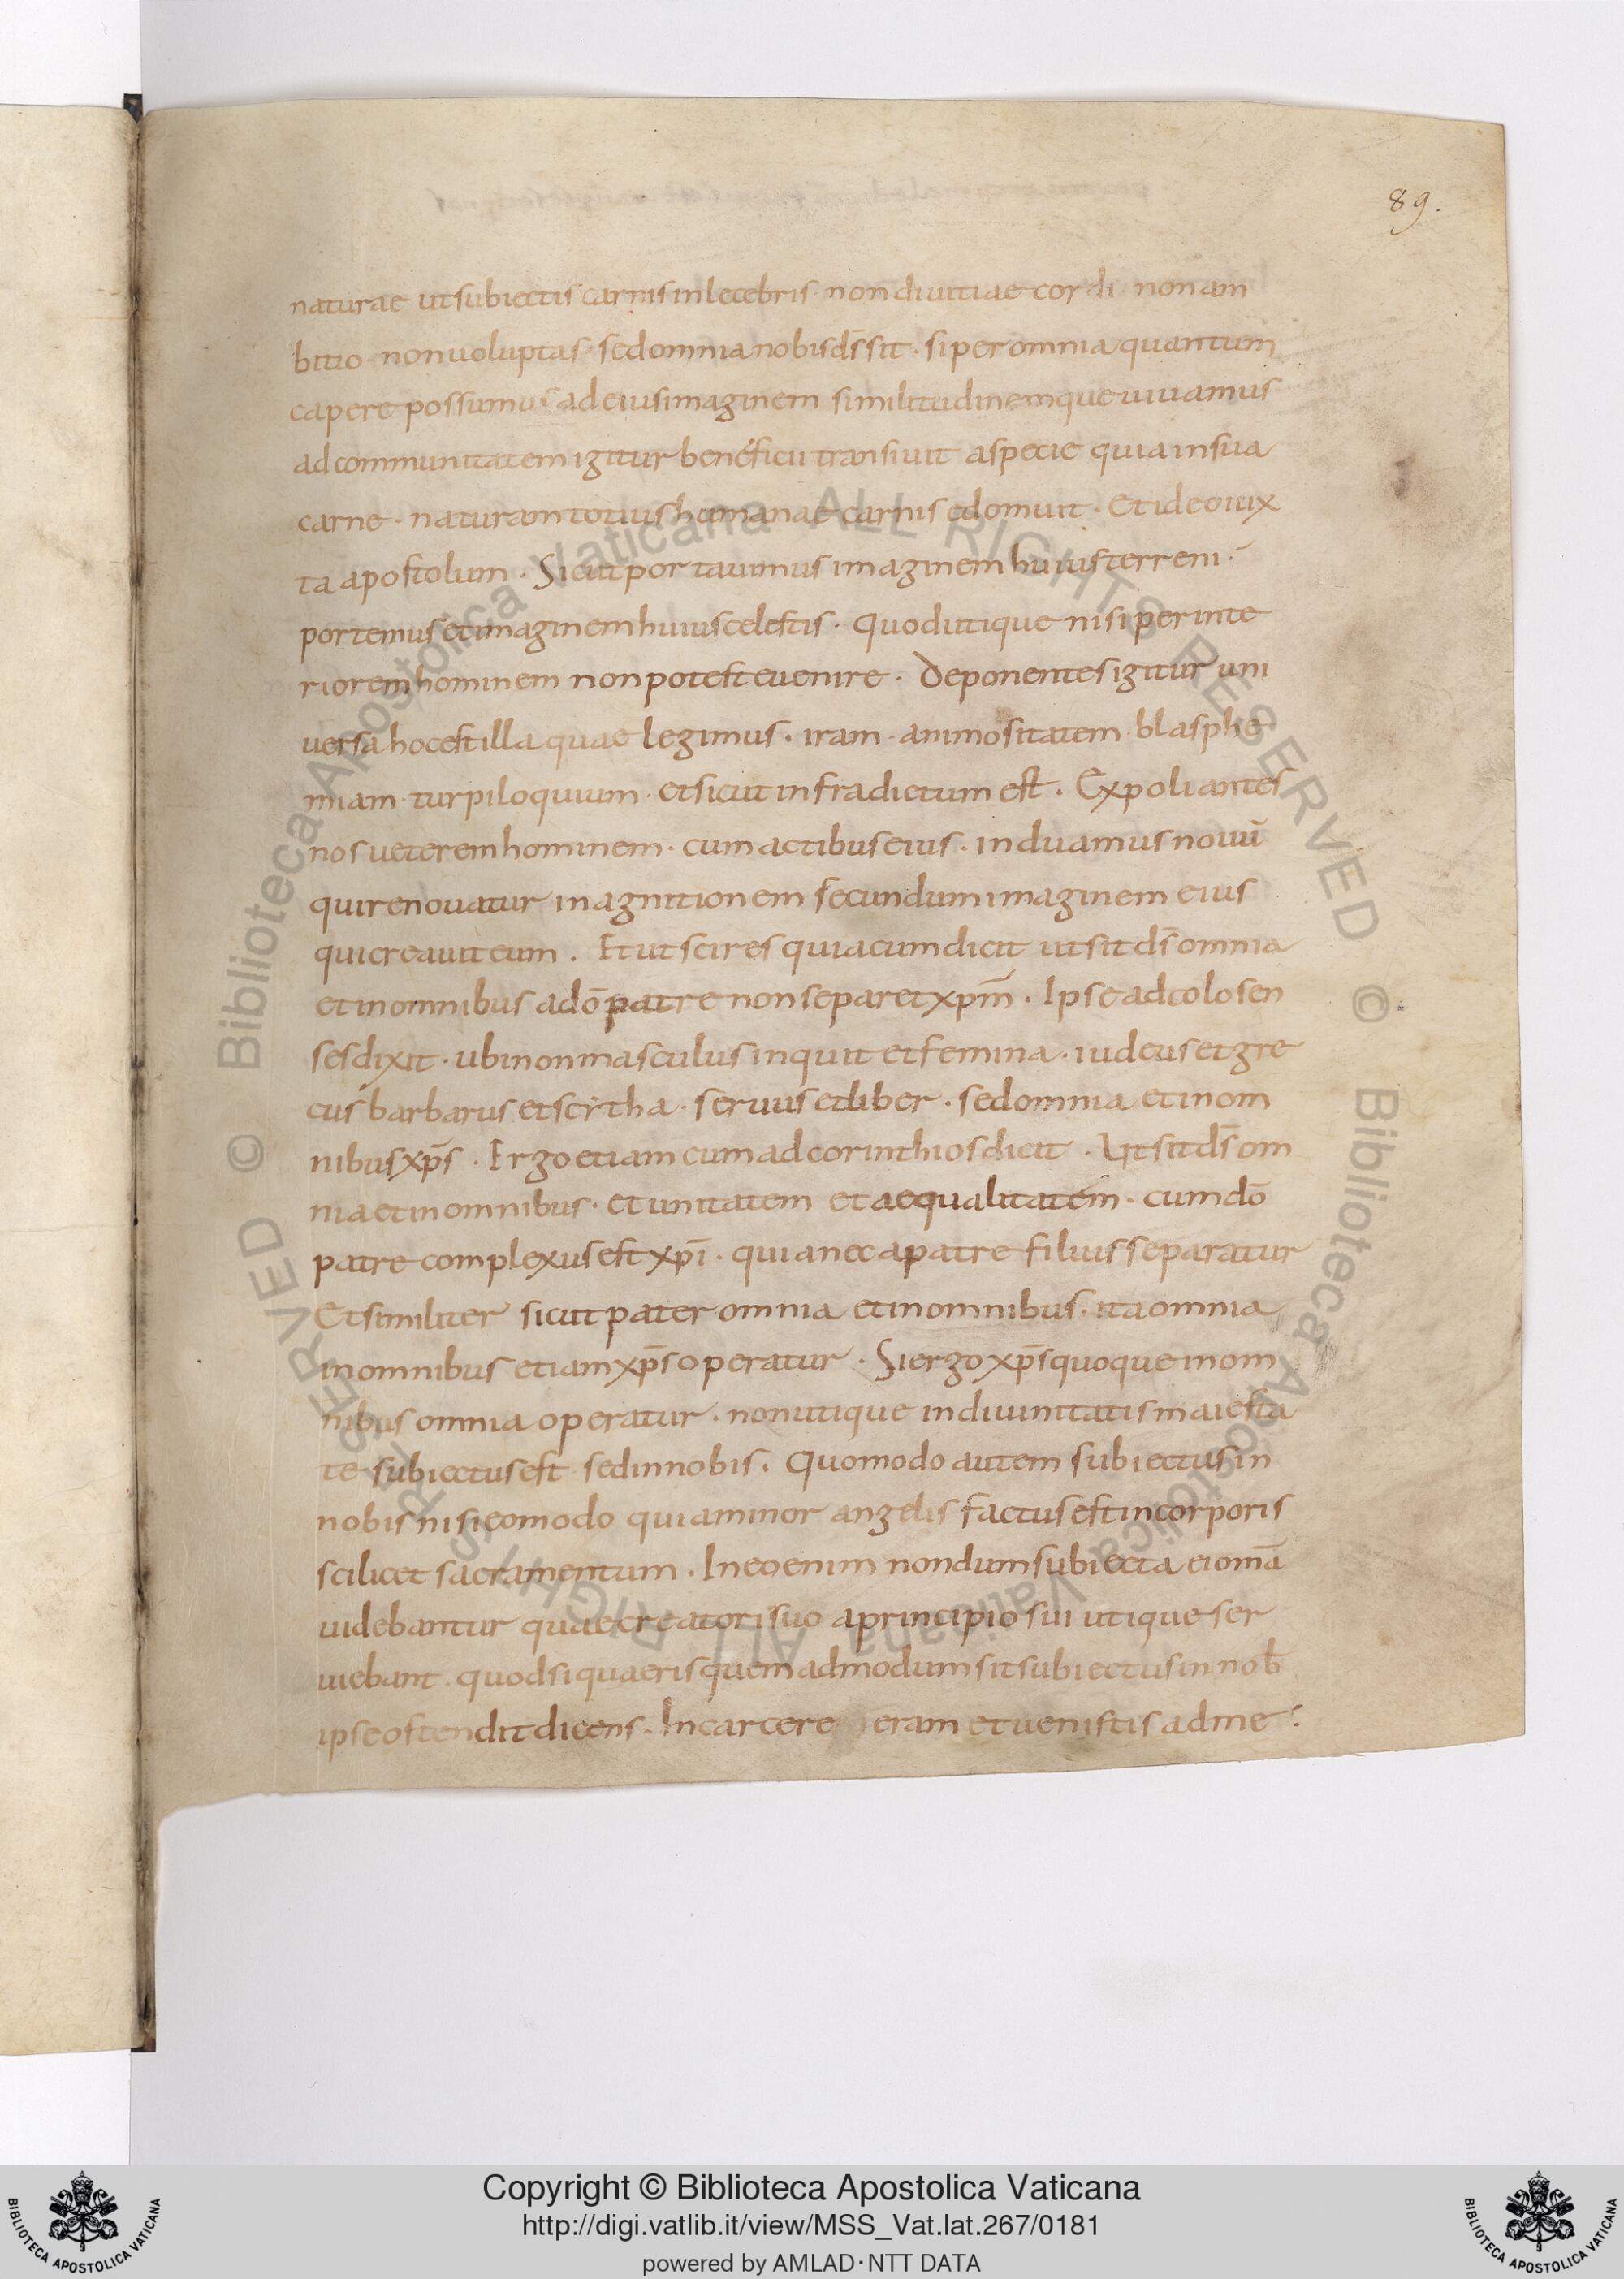 89.
naturae utsubiectis carnis inlecebris · non diuitiae cordi · non am
bitio · non uoluptas · sed omnia nobis d̄s sit · si per omnia quantum
capere possumus ad eius imaginem similitudinemque uiuamus
ad communitatem igitur beneficii transiuit a specie quia in sua
carne · naturam totius humanae carnis edomuit · Et ideo iux
ta apostolum · Sicut portauimus imaginem huius terreni ·
portemus et imaginem huius celestis · Quod utique nisi per inte
riorem hominem non potest euenire · Deponentes igitur uni
uersa hoc est illa quae legimus · iram · animositatem · blasphe
miam · turpiloquium · et sicut infra dictum est · Expoliantes
nos ueterem hominem · cum actibus eius · induamus nouū
qui renouatur in agnitionem secundum imaginem eius
qui creauit eum . Et ut scires quia cum dicit ut sit d̄s omnia
et in omnibus a dō patre non separet xp̄m · Ipse ad colosen
ses dixit · ubi non masculus inquit et femina · iudeus et gre
cus barbarus et scytha · seruus et liber · sed omnia et in om
nibus xp̄s · Ergo etiam cum ad corinthios dicit · Ut sit d̄s om
nia et in omnibus · et unitatem et aequalitatem · cum dō
patre complexus est xp̄i · quia nec a patre filius separatur
Et similiter sicut pater omnia et in omnibus · ita omnia
in omnibus etiam xp̄s operatur · Si ergo xp̄s quoque in om
nibus omnia operatur · non utique in diuinitatis maiesta
te subiectus est sed in nobis · Quomodo autem subiectus in
nobis nisi eo modo quia minor angelis factus est in corporis
scilicet sacramentum · In eo enim nondum subiecta ei omā
uidebantur quae creatori suo a principio sui utique ser
uiebant · quod si quaeris quemadmodum sit subiectus in nob̄
ipse ostendit dicens · In carcere eram et uenistis ad me ·
Copyright © Biblioteca Apostolica Vaticana
http://digi.vatlib.it/view/MSS_Vat.lat.267/0181
powered by AMLAD·NTT DATA
BIBLIOTECA APOSTOLICA VATICANA
BIBLIOTECA APOSTOLICA VATICANA
© Biblioteca Apostolica Vaticana ALL RIGHTS RESERVED
© Biblioteca Apostolica Vaticana ALL RIGHTS RESERVED